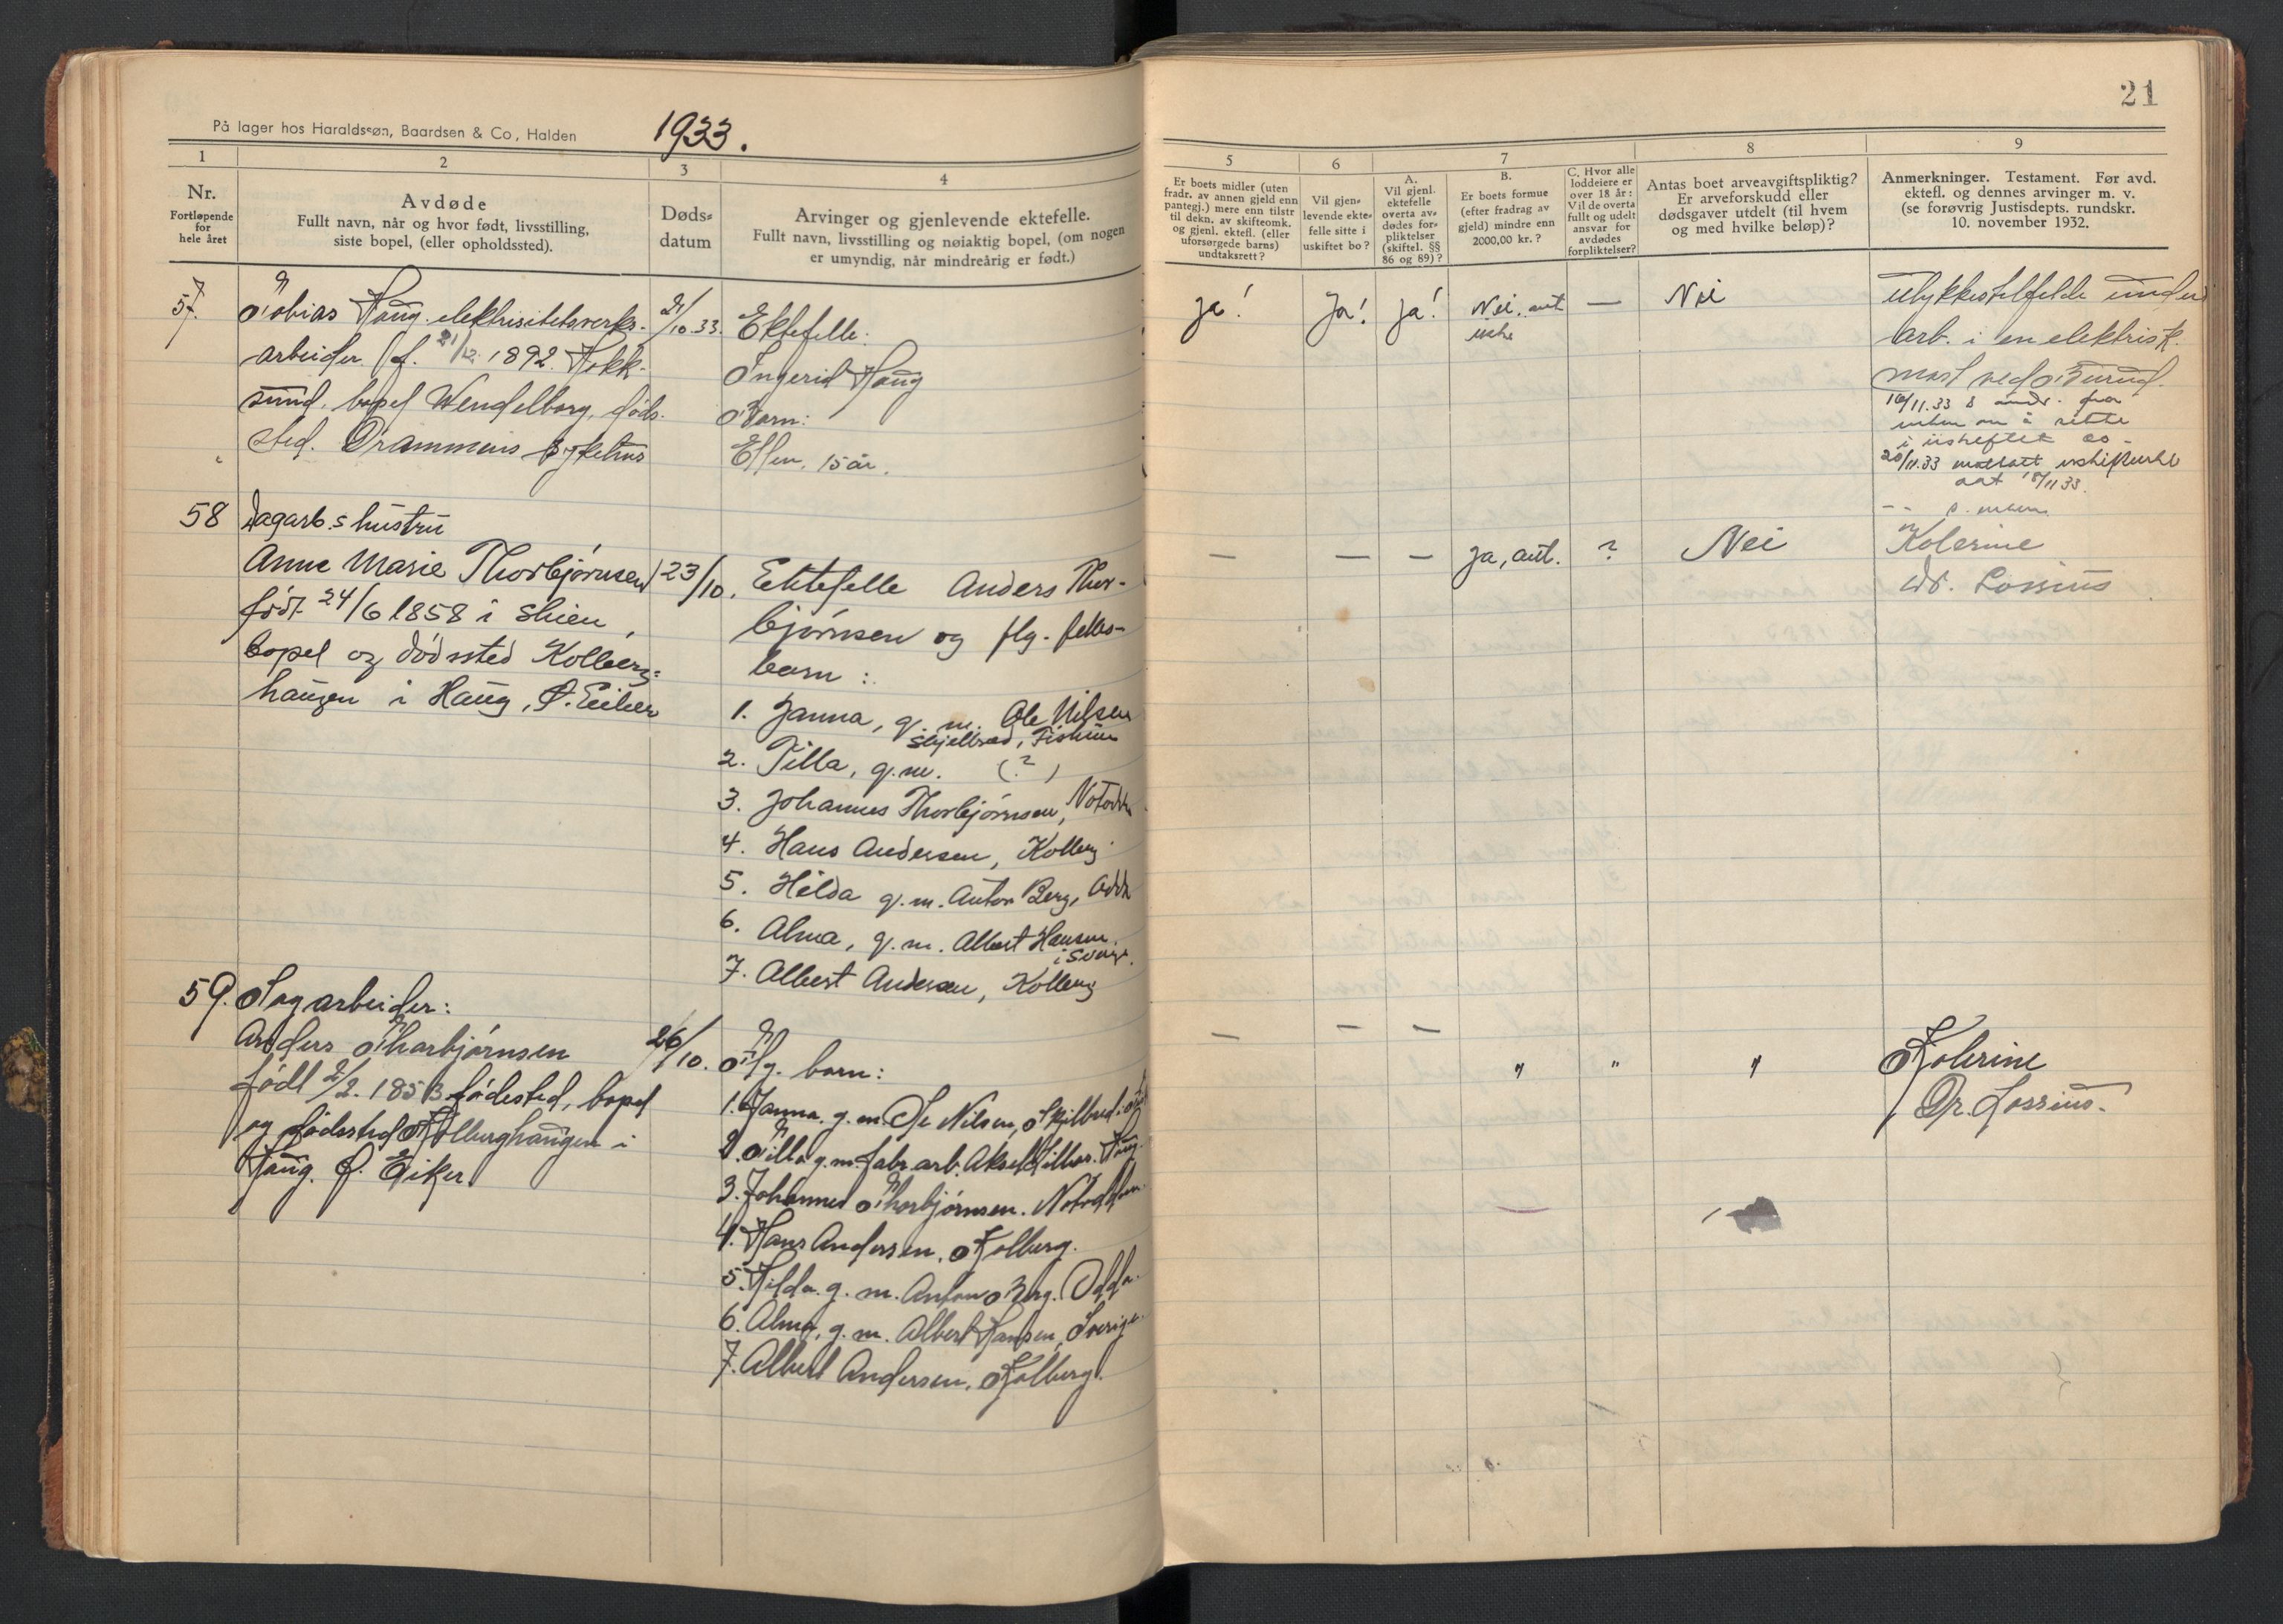 På lager hos Haraldssøn, Baardsen & Co, Halden
1933.
1
2
3
4
Nr.
Fortløpende
for
hele året
Avdøde
Fullt navn, når og hvor født, livsstilling,
siste bopel, (eller opholdssted).
Døds-
datum
Arvinger og gjenlevende ektefelle.
Fullt navn, livsstilling og nøiaktig bopel, (om nogen
er umyndig, når mindreårig er født.)
57.
Tobias Haug. elektrisitetsverks-
arbeider. f. 21/12. 1892. Hokk-
sund. bopel Wendelborg, døds-
sted. Drammens sykehus
21/10.33.
Ektefelle:
Ingerid Haug
Barn:
Ellen, 15 år.
58
Dagarb.s hustru
Anne Marie Thorbjørnsen
født 24/6 1858 i Skien,
bopel og dødssted Kolberg-
haugen i Haug, Ø. Eiker
23/10.
Ektefelle Anders Thor-
bjørnsen og flg. felles-
barn:
1. Janna, g. m. Ole Nilsen
Skjelbred, Fiskum
2. Tilla, g.m. (?)
3. Johannes Thorbjørnsen, Notodden
4. Hans Andersen, Kolberg
5. Hilda g.m. Anton Berg, Odda
6. Alma, g.m. Albert Hansen
i Sverige.
7. Albert Andersen, Kolberg
59.
Sagarbeider:
Anders Thorbjørnsen
født 2/2. 1853 fødested, bopel
og dødssted Kolberghaugen i
Haug. Ø. Eiker.
26/10.
Flg. barn:
1. Janna. g. m. Ole Nilsen, Skjelbred i
2. Tilla g.m. fabr. arb. Aksel Haug.
3. Johannes Thorbjørnsen. Notodden.
4. Hans Andersen, Kolberg.
5. Hilda. g. m. Anton Berg. Odda.
6. Alma, g. m. Albert Hansen, Sverige.
7. Albert Andersen. Kolberg.
21
5
6
7
8
9
Er boets midler (uten
fradr. av annen gjeld enn
pantegj.) mere enn tilstr
til dekn. av skifteomk.
og gjenl. ektefl. (eller
uforsørgede barns)
undtaksrett?
Vil gjen-
levende ekte-
felle sitte i
uskiftet bo?
A.
Vil gjenl.
ektefelle
overta av-
dødes for-
pliktelser
(skiftel. §§
86 og 89)?
B.
Er boets formue
(efter fradrag av
gjeld) mindre enn
2000,00 kr.?
C. Hvor alle
loddeiere er
over 18 år:
Vil de overta
fullt og udelt
ansvar for
avdødes
forpliktelser?
Antas boet arveavgiftspliktig?
Er arveforskudd eller
dødsgaver utdelt (til hvem
og med hvilke beløp)?
Anmerkninger. Testament. Før avd.
ektefl. og dennes arvinger m. v.
(se forøvrig Justisdepts. rundskr.
10. november 1932.
Ja!
Ja!
Ja!
Nei, ant.
—
Nei
Ulykkestilfelde under
arb. i en elektrisk
mast ved Burud.
16/11.33
enken om å sette
i uskiftet bo -
20/11.33 mottatt
18/11 33.
—
—
—
Ja, ant.
?
Nei
Kolerine
Dr. Lossius
—
—
—
"
"
"
Kolerine
Dr. Lossius.